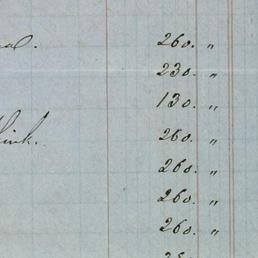 260. "
230. "
130. "
260. "
260. "
260. "
260. "